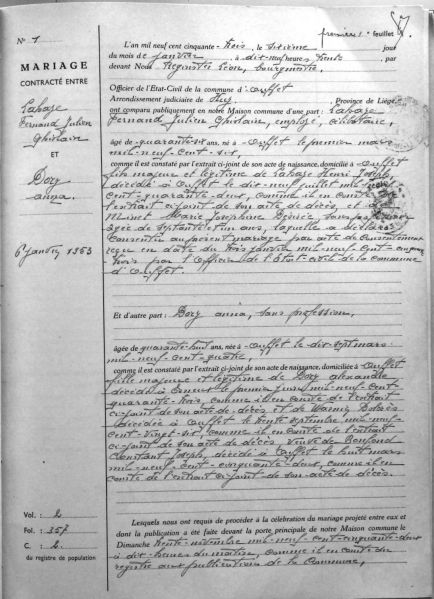 premier feuillet
N° 1
MARIAGE
CONTRACTÉ ENTRE
Fernand Julien
Ghislain
ET
Dory
Anna.
6 janvier 1953
L'an mil neuf cent cinquante-trois, le sixième jour
du mois de janvier, à dix-neuf heures trente, par
devant Nous Léon, bourgmestre,
Officier de l'Etat-Civil de la commune d'Ouffet
Arrondissement judiciaire de Huy, Province de Liège,
ont comparu publiquement en notre Maison commune d'une part :
Fernand Julien Ghislain, employé, célibataire,
âgé de quarante-six ans, né à Ouffet le premier mars
mil-neuf-cent-six,
comme il est constaté par l'extrait ci-joint de son acte de naissance, domicilié à Ouffet
fils majeur et légitime de Henri Joseph,
décédé à Ouffet le dix-neuf juillet mil-neuf-
cent-quarante-deux, comme il en conste de
l'extrait ci-joint de son acte de décès, et de
Marie Joséphine Désirée, sans profession,
âgée de septante et un ans, laquelle a déclaré
consentir au présent mariage par acte de consentement
reçu en date du trois janvier mil-neuf-cent-cinquante
trois par l'Officier de l'Etat-civil de la commune
d'Ouffet.
Et d'autre part : Dory Anna, sans profession,
âgée de quarante-huit ans, née à Ouffet le dix-sept mars
mil-neuf-cent-quatre,
comme il est constaté par l'extrait ci-joint de son acte de naissance, domiciliée à Ouffet
fille majeure et légitime de Dory Alexandre
décédé à le premier mil-neuf-cent-
quarante-trois, comme il en conste de l'extrait
ci-joint de son acte de décès et de
décédée à Ouffet le trente septembre mil-neuf-
cent-vingt-six comme il en conste de l'extrait
ci-joint de son acte de décès, veuve de
Constant Joseph, décédé à Ouffet le huit mars
mil-neuf-cent-cinquante-deux, comme il en
conste de l'extrait ci-joint de son acte de décès.
Vol. : 2
Fol. : 357
C. : 2.
du registre de population
Lesquels nous ont requis de procéder à la célébration du mariage projeté entre eux et
dont la publication a été faite devant la porte principale de notre Maison commune le
Dimanche trente novembre mil-neuf-cent-cinquante-deux
à dix heures du matin, comme il en conste du
registre aux publications de la commune,